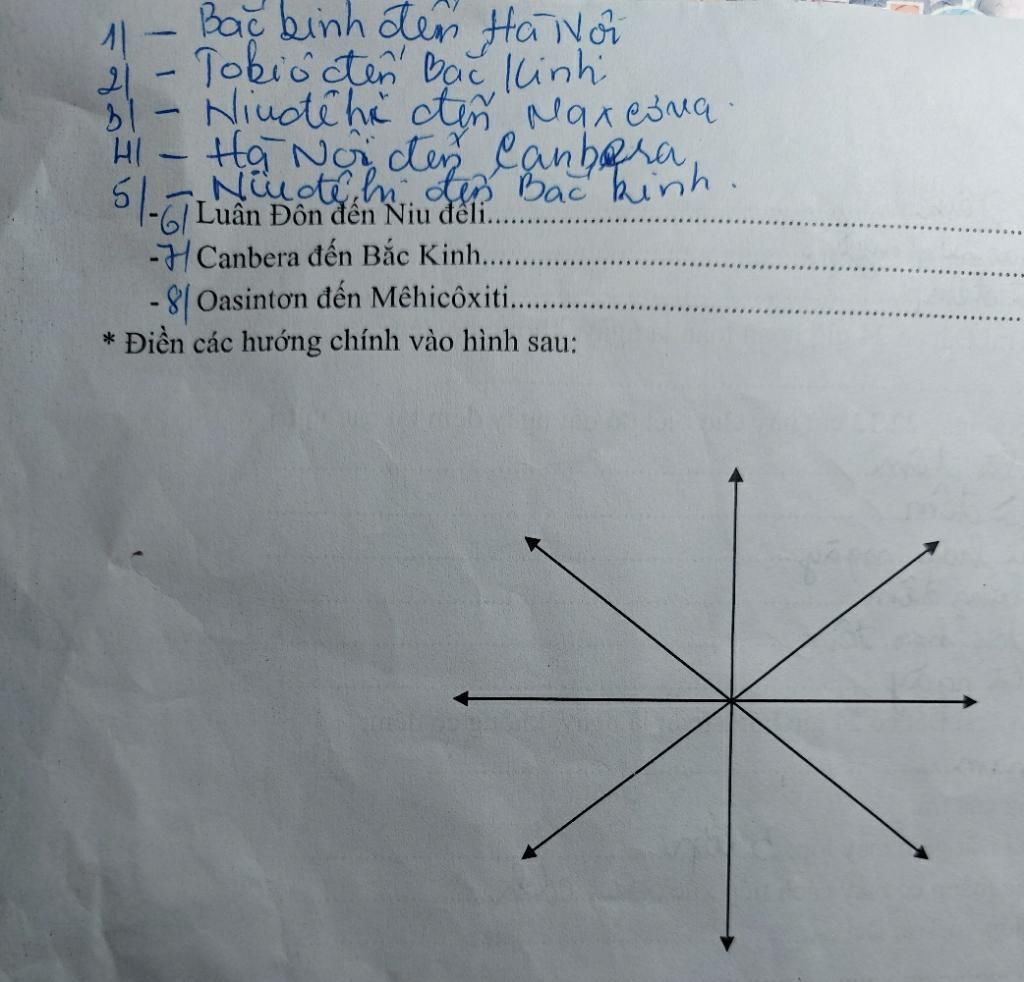 1/ - Bắc kinh đến Hà Nội
2/ - Tokiô đến Bắc Kinh
3/ - Niuđêhi đến Maxcơva.
4/ - Hà Nội đến Canbera
5/ - Niuđêhi đến Bắc kinh.
-6/ Luân Đôn đến Niu đêli....................
-7/ Canbera đến Bắc Kinh....................
-8/ Oasintơn đến Mêhicôxiti....................
* Điền các hướng chính vào hình sau: